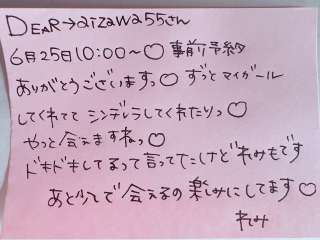 DEAR→aizawa55さん
6月25日10:00〜♡ 事前予約
ありがとうございますっ♡ ずっとマイガール
してくれてて シンデレラしてくれたりっ♡
やっと会えますねっ♡
ドキドキしてるって言ってたけどれみもです
あと少しで会えるの楽しみにしてます♡
れみ